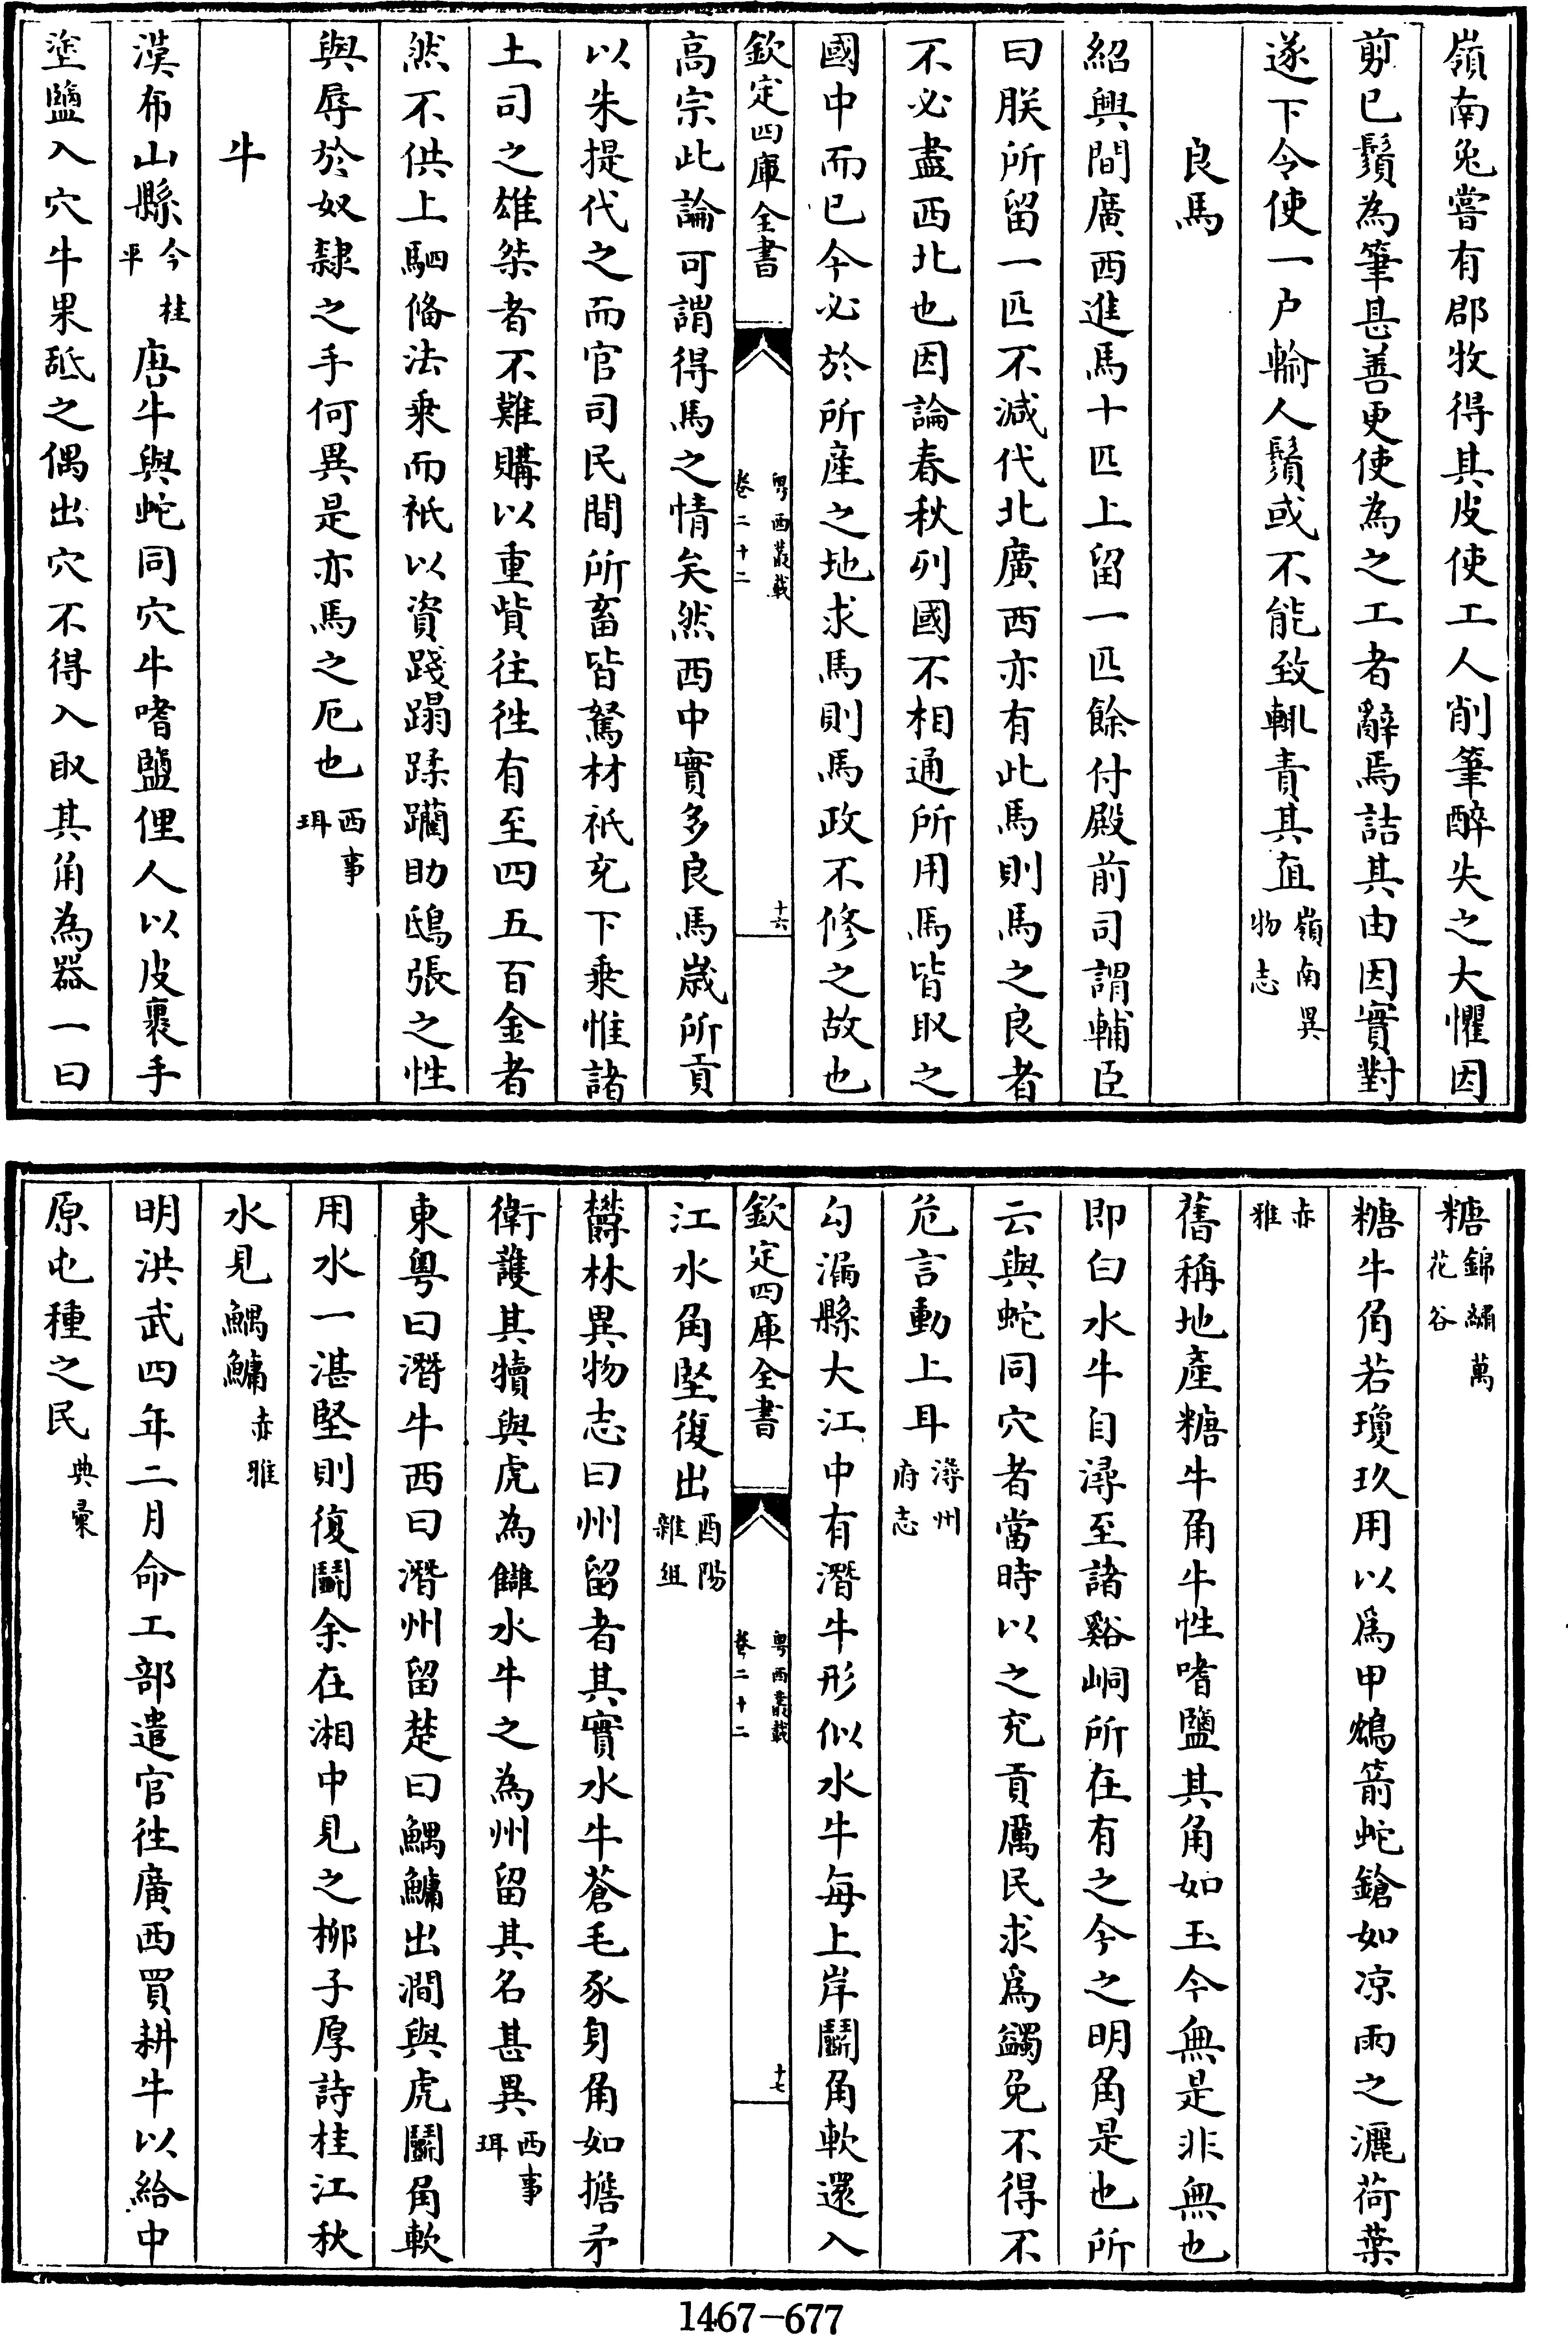 嶺南兔嘗有郡牧得其皮使工人削筆醉失之大懼因
剪已鬚為筆甚善更使為之工者辭焉詰其由因實對
遂下令使一户輸人鬚或不能致輒責其直嶺南異物志
良馬
紹興間廣西進馬十匹上留一匹餘付殿前司謂輔臣
曰朕所留一匹不减代北廣西亦有此馬則馬之良者
不必盡西北也因論春秋列國不相通所用馬皆取之
國中而已今必於所產之地求馬則馬政不修之故也
欽定四庫全書
粤西叢載
卷二十二
十六
高宗此論可謂得馬之情矣然西中實多良馬嵗所貢
以朱提代之而官司民間所畜皆駑材祇充下乗惟諸
土司之雄桀者不難購以重貲往徃有至四五百金者
然不供上駟俻法乗而祇以資踐蹋蹂躪助鴟張之性
與辱於奴隸之手何異是亦馬之厄也西事珥
牛
漢布山縣今桂平唐牛與蛇同穴牛嗜鹽俚人以皮裹手
塗鹽入穴牛果舐之偶出穴不得入取其角為器一曰
糖錦繡萬花谷
糖牛角若瓊玖用以爲甲鷓箭蛇鎗如凉雨之灑荷葉
赤雅
舊稱地產糖牛角牛性嗜鹽其角如玉今無是非無也
即白水牛自潯至諸谿峒所在有之今之明角是也所
云與蛇同穴者當時以之充貢厲民求爲蠲免不得不
危言動上耳潯州府志
勾漏縣大江中有潛牛形似水牛每上岸鬬角軟還入
欽定四庫全書
粤西叢載
卷二十二
十七
江水角堅復出酉陽雜俎
欝林異物志曰州留者其實水牛蒼毛豕身角如擔矛
衛護其犢與虎為讎水牛之為州留其名甚異西事珥
東粤曰潛牛西曰潛州留楚曰鰅鱅出澗與虎鬬角軟
用水一湛堅則復鬬余在湘中見之柳子厚詩桂江秋
水見鰅鱅赤雅
明洪武四年二月命工部遣官徃廣西買耕牛以給中
原屯種之民典彙
1467-677